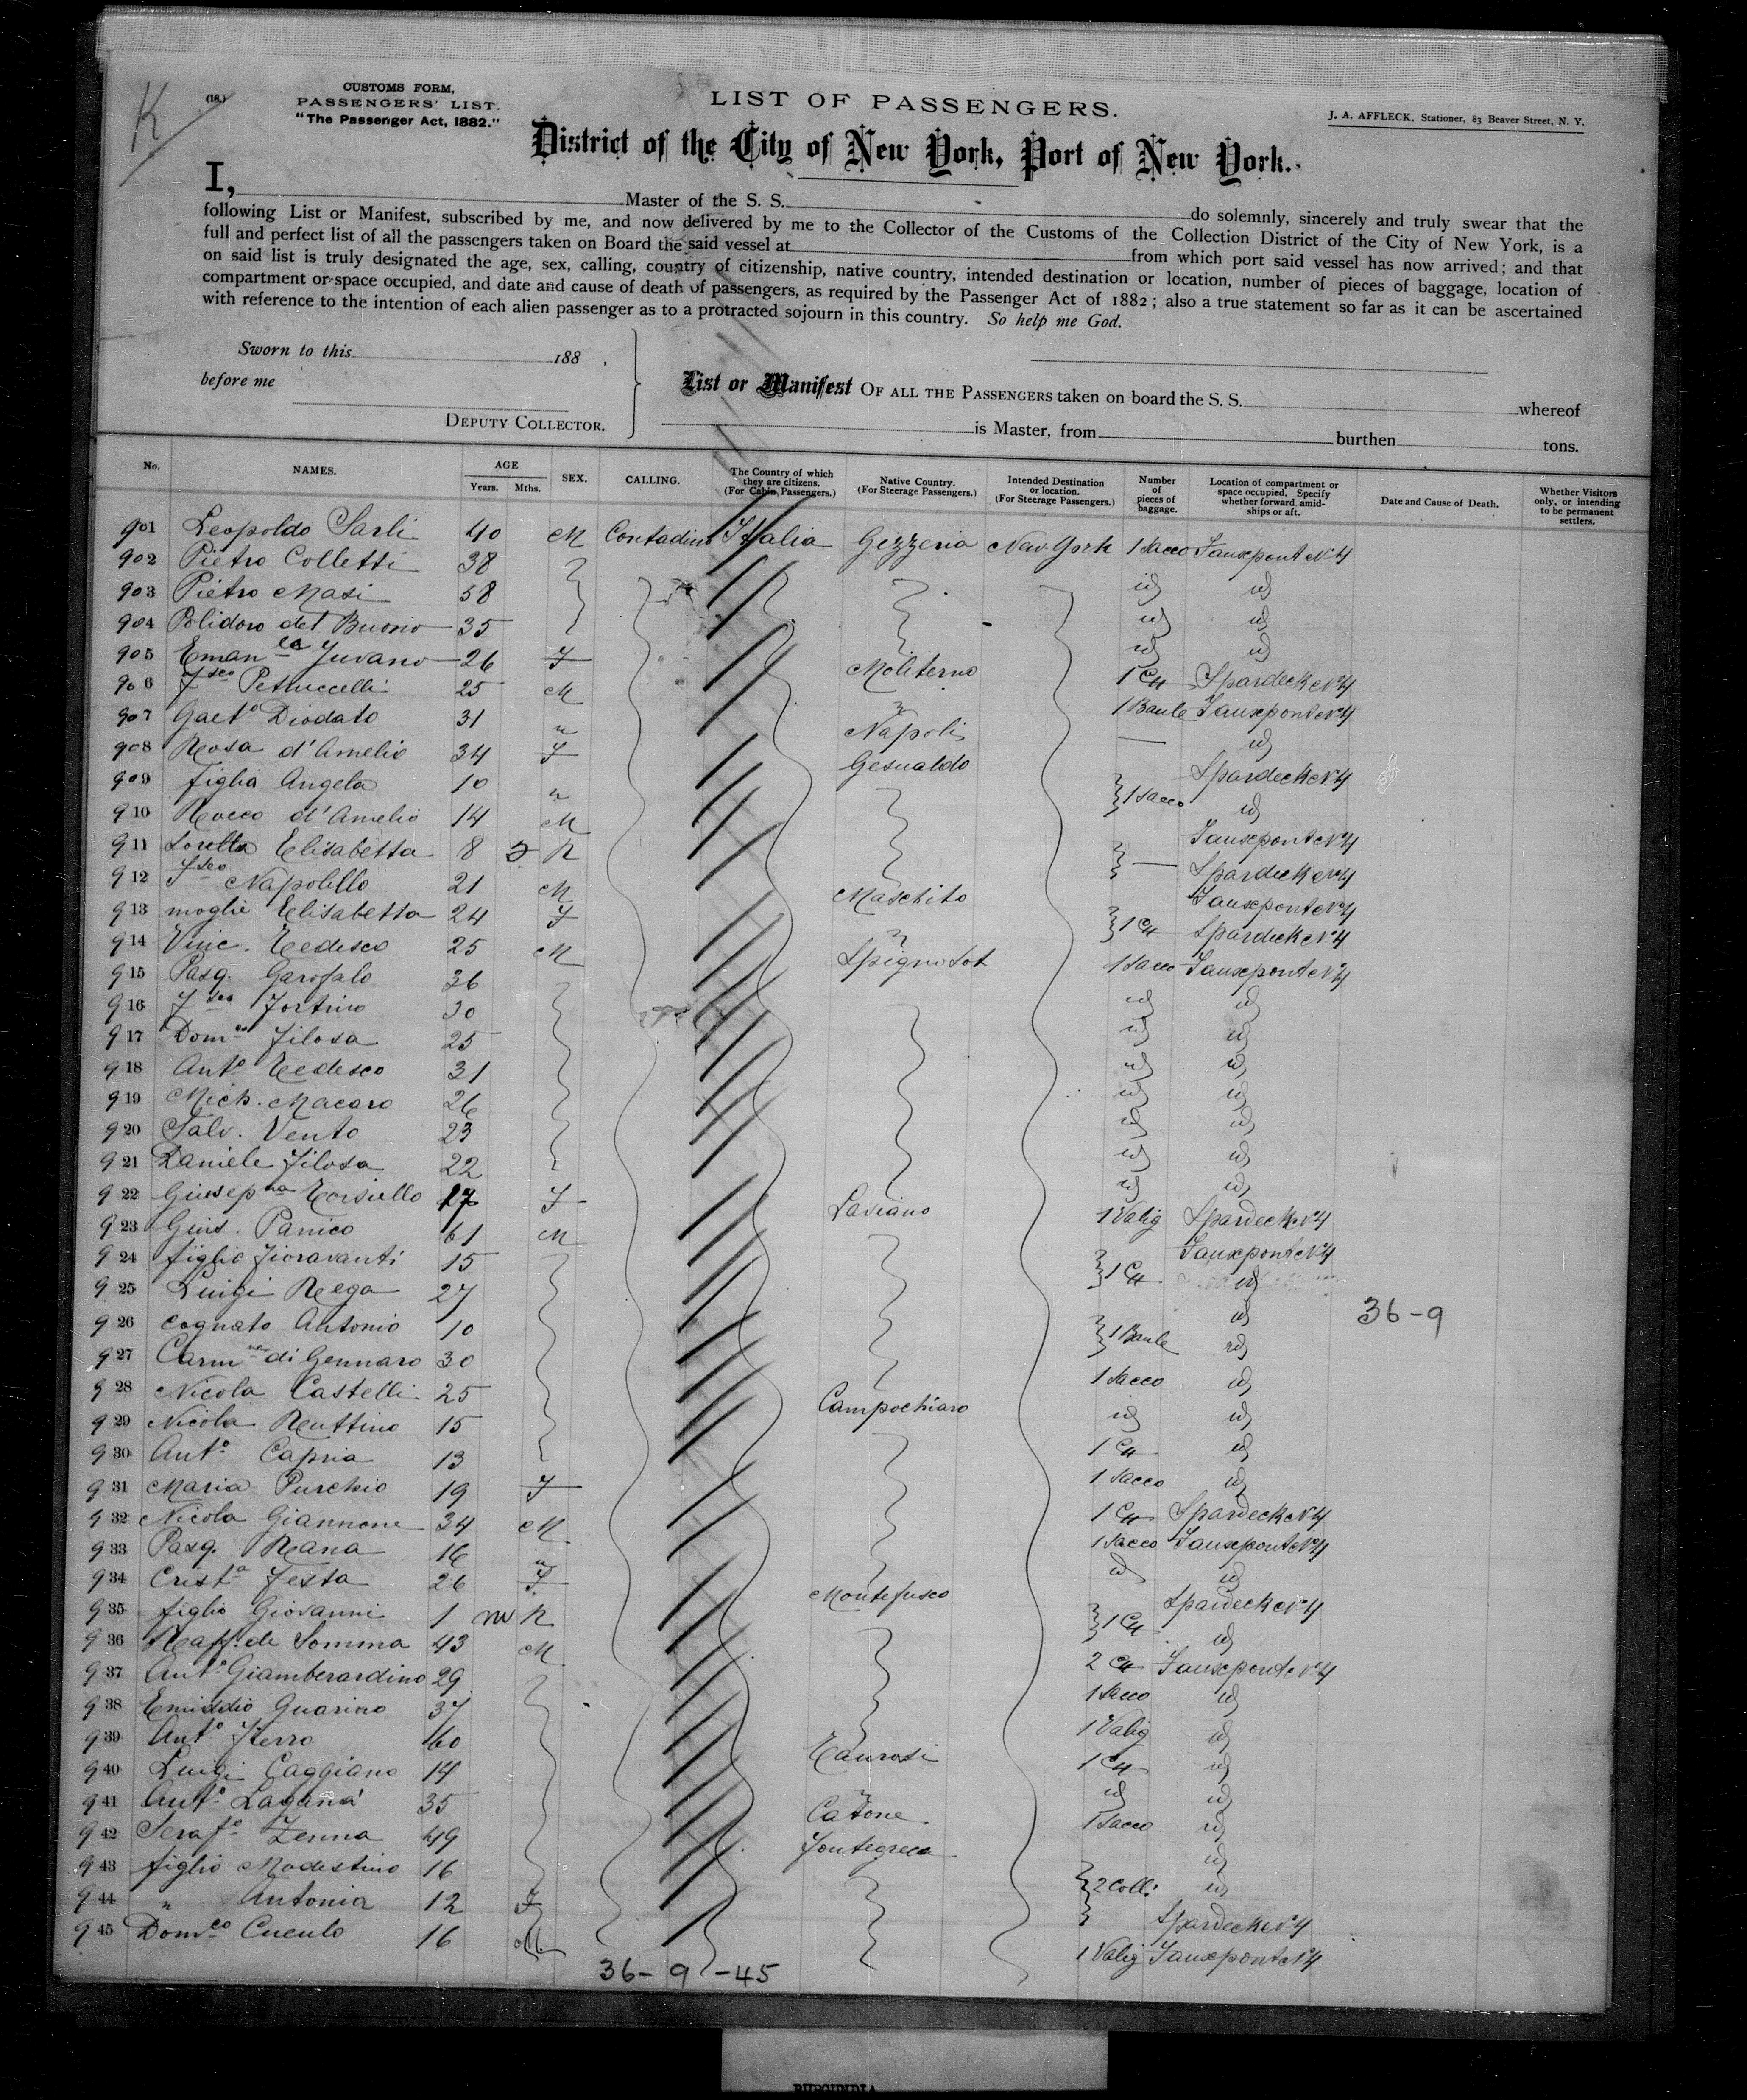 K
(18.)
CUSTOMS FORM,
PASSENGERS' LIST.
"The Passenger Act, 1882."
LIST OF PASSENGERS.
J. A. AFFLECK, Stationer, 83 Beaver Street, N. Y.
District of the City of New York, Port of New York.
I, Master of the S. S. do solemnly, sincerely and truly swear that the
following List or Manifest, subscribed by me, and now delivered by me to the Collector of the Customs of the Collection District of the City of New York, is a
full and perfect list of all the passengers taken on Board the said vessel at from which port said vessel has now arrived; and that
on said list is truly designated the age, sex, calling, country of citizenship, native country, intended destination or location, number of pieces of baggage, location of
compartment or space occupied, and date and cause of death of passengers, as required by the Passenger Act of 1882; also a true statement so far as it can be ascertained
with reference to the intention of each alien passenger as to a protracted sojourn in this country. So help me God.
Sworn to this 188 ,
before me
DEPUTY COLLECTOR.
List or Manifest OF ALL THE PASSENGERS taken on board the S. S. whereof
is Master, from burthen tons.
No. NAMES. AGE Years. Mths. SEX. CALLING. The Country of which they are citizens. (For Cabin Passengers.) Native Country. (For Steerage Passengers.) Intended Destination or location. (For Steerage Passengers.) Number of pieces of baggage. Location of compartment or space occupied. Specify whether forward, amidships or aft. Date and Cause of Death. Whether Visitors only, or intending to be permanent settlers.
901 Leopoldo Sarli 40 M Contadini Italia Gizzeria New York 1 Sacco Fauxpont N°4
902 Pietro Colletti 38 id id
903 Pietro Masi 58 id id
904 Polidoro del Buono 35 id id
905 Eman la Juvano 26 F Moliterno 1 Ca Spardeck N°4
906 Fsco Petruccelli 25 M " 1 Baule Fauxpont N°4
907 Gaet° Diodato 31 " Napoli — id
908 Rosa d'Amelio 34 F Gesualdo Spardeck N°4
909 figlia Angela 10 " 1 Sacco id
910 Rocco d'Amelio 14 M Fauxpont N°4
911 Sorella Elisabetta 8 R — Spardeck N°4
912 Fsco Napolillo 21 M Maschito Fauxpont N°4
913 moglie Elisabetta 24 F " 1 Ca Spardeck N°4
914 Vinc. Tedesco 25 M Spigno Sat 1 Sacco Fauxpont N°4
915 Pasq. Garofalo 36 id id
916 Fsco Fortino 30 id id
917 Domco Filosa 25 id id
918 Ant° Tedesco 31 id id
919 Mich. Macaro 26 id id
920 Salv. Vento 23 id id
921 Daniele Filosa 22 id id
922 Giusepna Torsiello 17 F Laviano 1 Valig Spardeck N°4
923 Gius. Panico 61 M Fauxpont N°4
924 figlio Fioravanti 15 1 Ca id
925 Luigi Rega 27 id
36-9
926 cognato Antonio 10 1 Baule id
927 Carmne di Gennaro 30 1 Sacco id
928 Nicola Castelli 25 Campochiaro id id
929 Nicola Ruttino 15 1 Ca id
930 Ant° Capria 13 1 Sacco id
931 Maria Purchio 19 F 1 Ca Spardeck N°4
932 Nicola Giannone 34 M 1 Sacco Fauxpont N°4
933 Pasq. Rana 16 " id id
934 Crista Testa 26 F Montefusco Spardeck N°4
935 figlio Giovanni 1 m R 1 Ca id
936 Raff. de Somma 43 M 2 Ca Fauxpont N°4
937 Ant° Giamberardino 29 1 Sacco id
938 Emiddio Guarino 37 1 Valig id
939 Ant° Fierro 60 Taurasi 1 Ca id
940 Luigi Caggiano 14 " id id
941 Ant° Laganá 35 Catone 1 Sacco id
942 Seraf° Zenna 49 Fontegreca id
943 figlio Modestino 16 2 Colli id
944 " Antonia 12 F Spardeck N°4
945 Domco Cuculo 16 M 1 Valig Fauxpont N°4
36-9-45